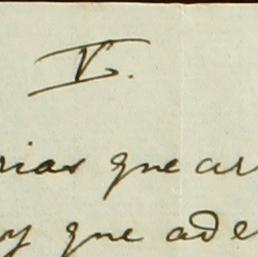 V.
rias que ar
y que ade